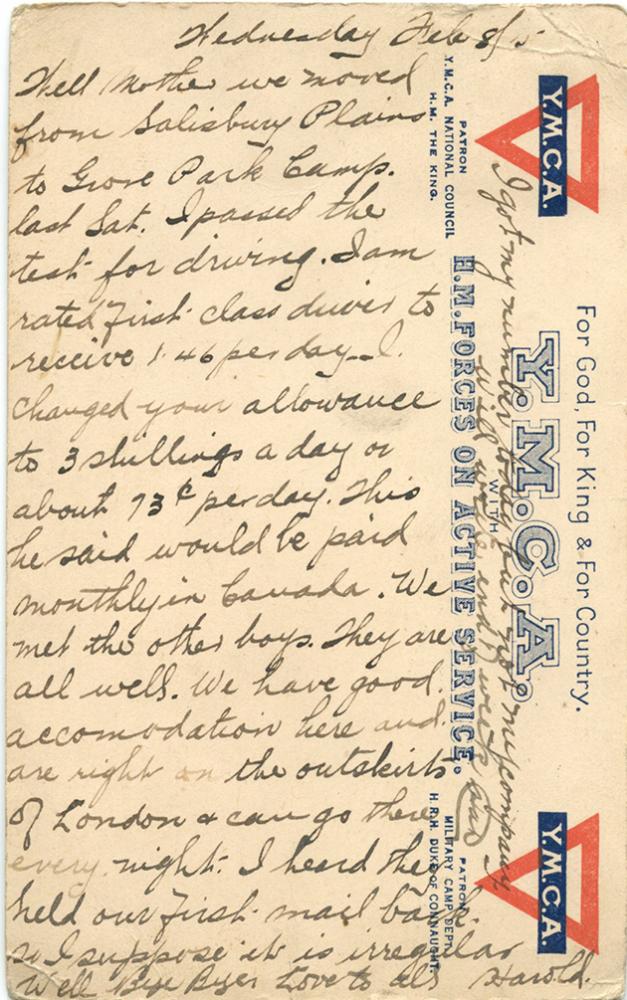 Wednesday Feb 8/15
Well Mother we moved
from Salisbury Plains
to Grove Park Camp.
last Sat. I passed the
test for driving. I am
rated first class driver to
receive 1.46 per day - I
changed your allowance
to 3 shillings a day or
about 73¢ per day. This
he said would be paid
monthly in Canada. We
met the other boys. They are
all well. We have good
accomodation here and
are right on the outskirts
of London & can go there
every night. I heard they
held our first mail back.
so I suppose it is irregular
Well Bye Byes Love to all Harold.
I got my number today but not my company
will write end of week
For God, For King & For Country.
Y.M.C.A.
Y.M.C.A.
WITH
H.M. FORCES ON ACTIVE SERVICE.
Y.M.C.A.
PATRON
Y.M.C.A. NATIONAL COUNCIL
H.M. THE KING.
PATRON
MILITARY CAMP DEPT
H.R.H. DUKE OF CONNAUGHT.